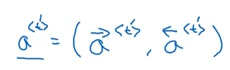 a^{<t'>} = ( \overrightarrow{a}^{<t'>}, \overleftarrow{a}^{<t'>} )